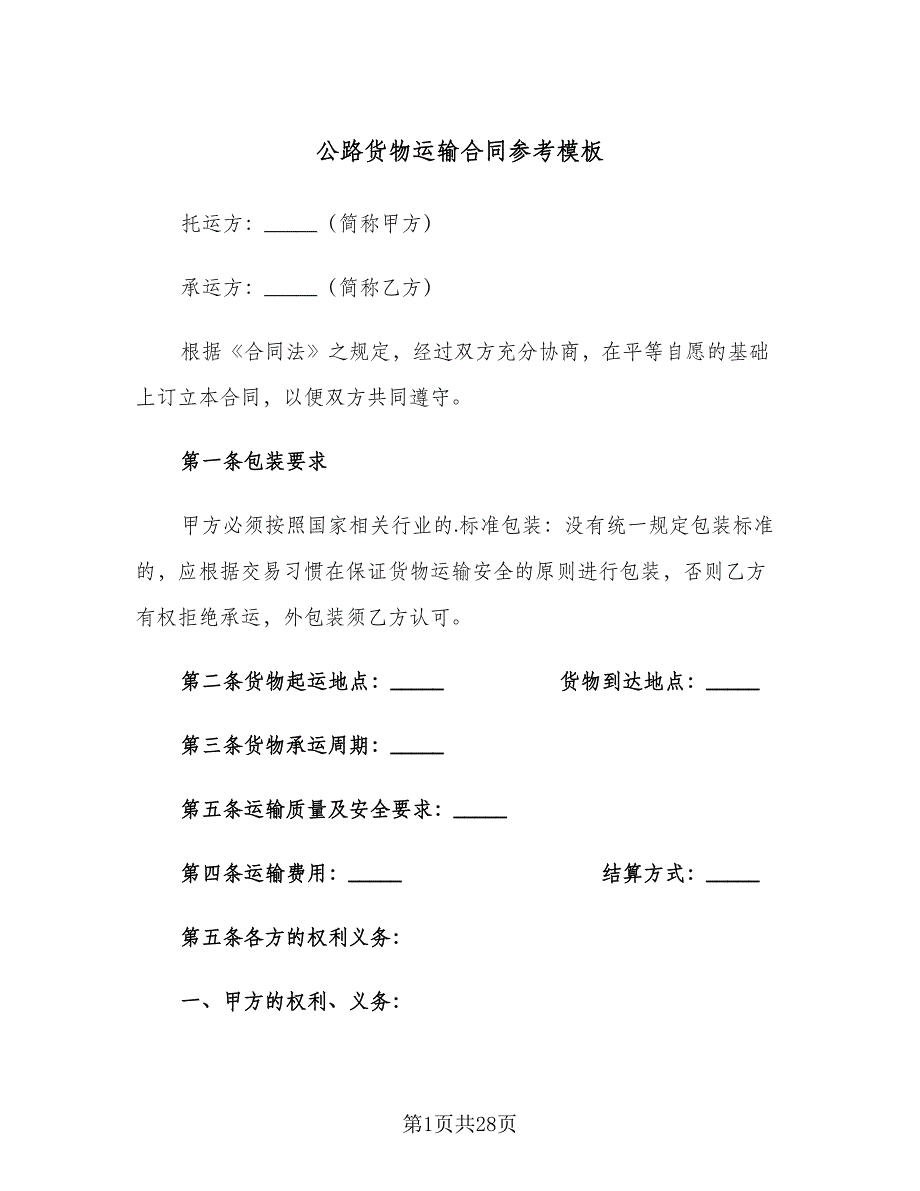 公路货物运输合同参考模板
托运方：_____（简称甲方）
承运方：_____（简称乙方）
根据《合同法》之规定，经过双方充分协商，在平等自愿的基础
上订立本合同，以便双方共同遵守。
第一条包装要求
甲方必须按照国家相关行业的.标准包装：没有统一规定包装标准
的，应根据交易习惯在保证货物运输安全的原则进行包装，否则乙方
有权拒绝承运，外包装须乙方认可。
第二条货物起运地点：_____ 货物到达地点：_____
第三条货物承运周期：_____
第五条运输质量及安全要求：_____
第四条运输费用：_____ 结算方式：_____
第五条各方的权利义务：
一、甲方的权利、义务：
第1页共28页